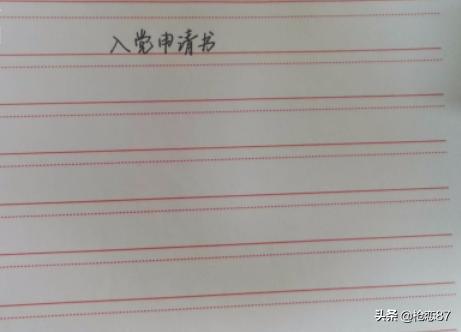 入党申请书
头条@枪恋87